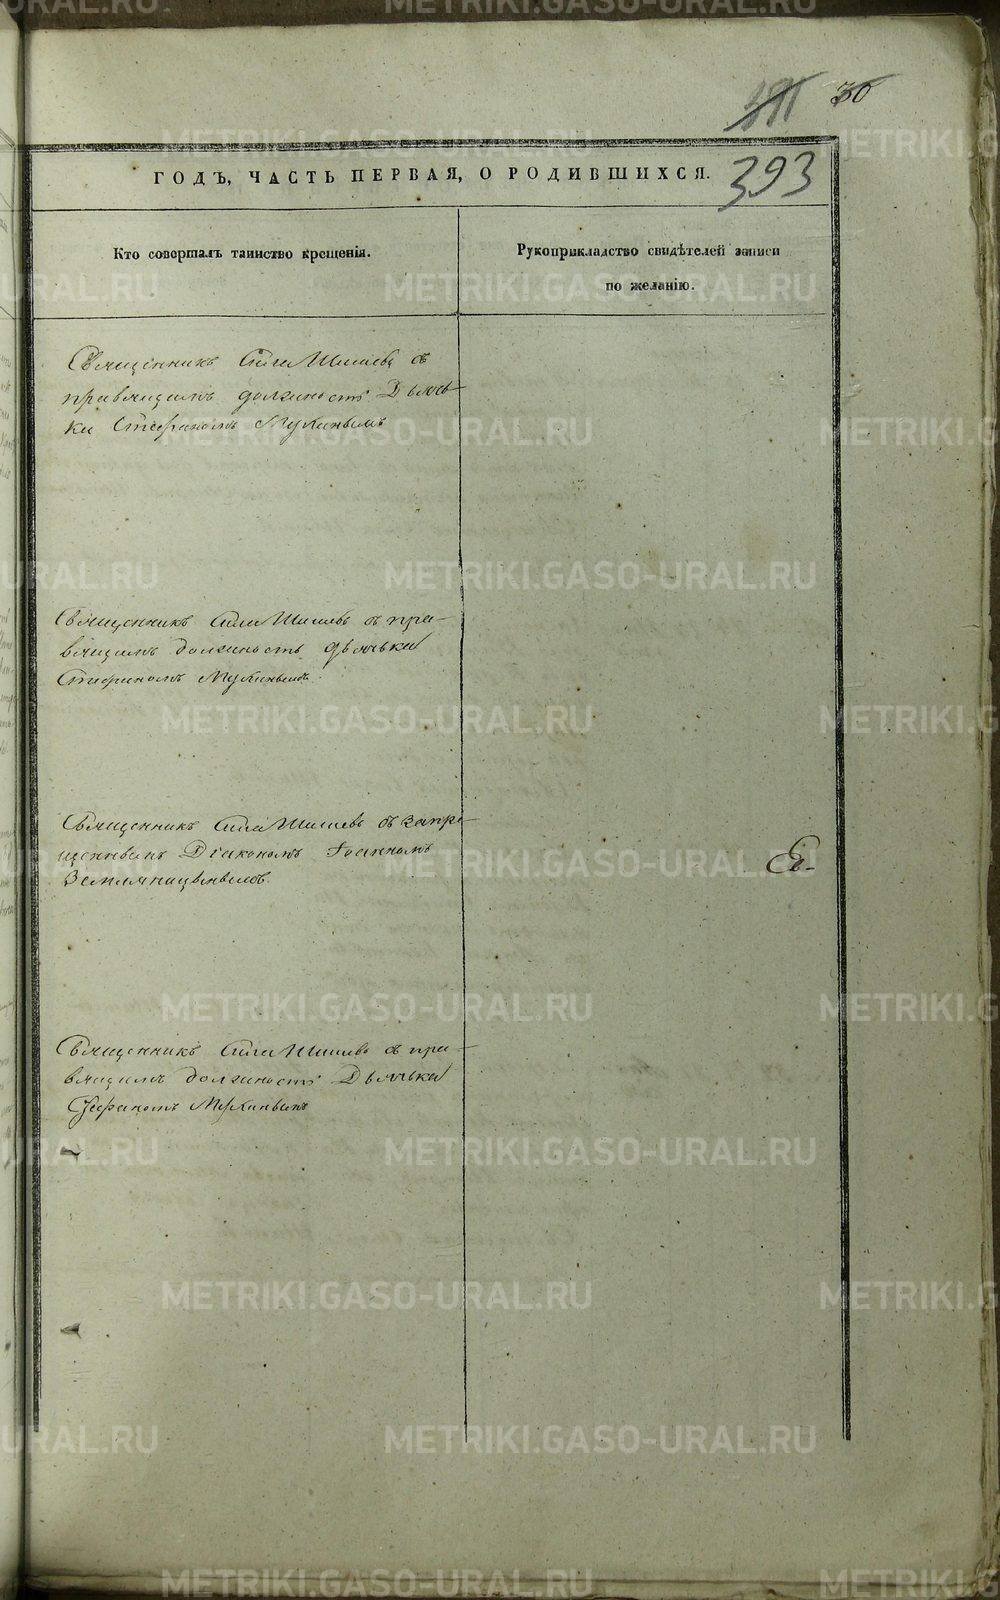 30
393
ГОДЪ, ЧАСТЬ ПЕРВАЯ, О РОДИВШИХСЯ.
Кто совершалъ таинство крещенія.
Рукоприкладство свидѣтелей записи
по желанію.
Священникъ Сила Шишевъ съ
правящимъ должность Дьячь-
ка Стефаномъ Мухинымъ
Священникъ Сила Шишевъ съ пра-
вящимъ должность дьячька
Стефаномъ Мухинымъ.
Священникъ Сила Шишевъ съ запре-
щеннымъ Діакономъ Іоанномъ
Земляницынымъ.
Священникъ Сила Шишевъ съ пра-
вящимъ должность Дьячька
Стефаномъ Мухинымъ
METRIKI.GASO-URAL.RU